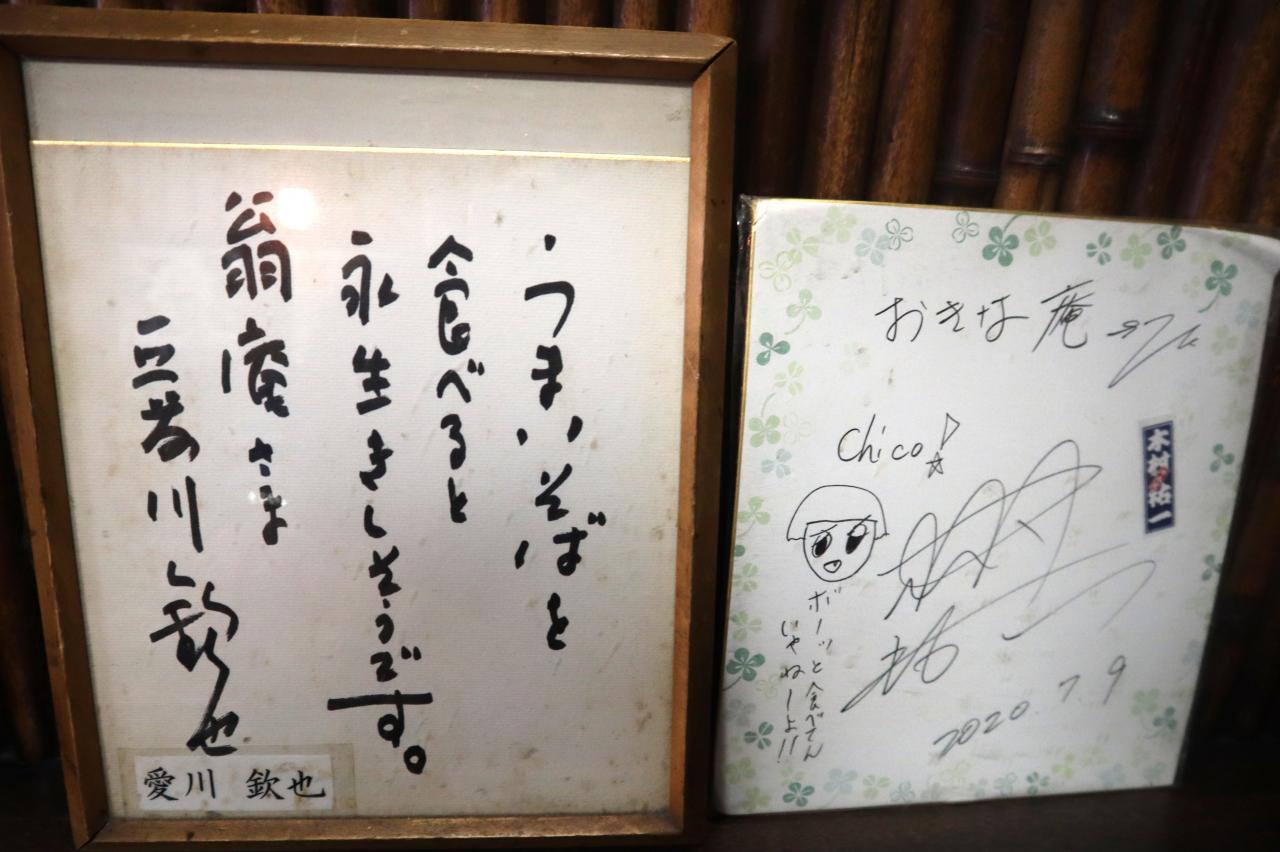 うまいそばを
食べると
永生きしそうです。
翁庵さま
愛川欽也
愛川 欽也
おきな庵さん
Chico!
ボーッと食べてん
じゃねーよ!!
木村祐一
2020.7.9